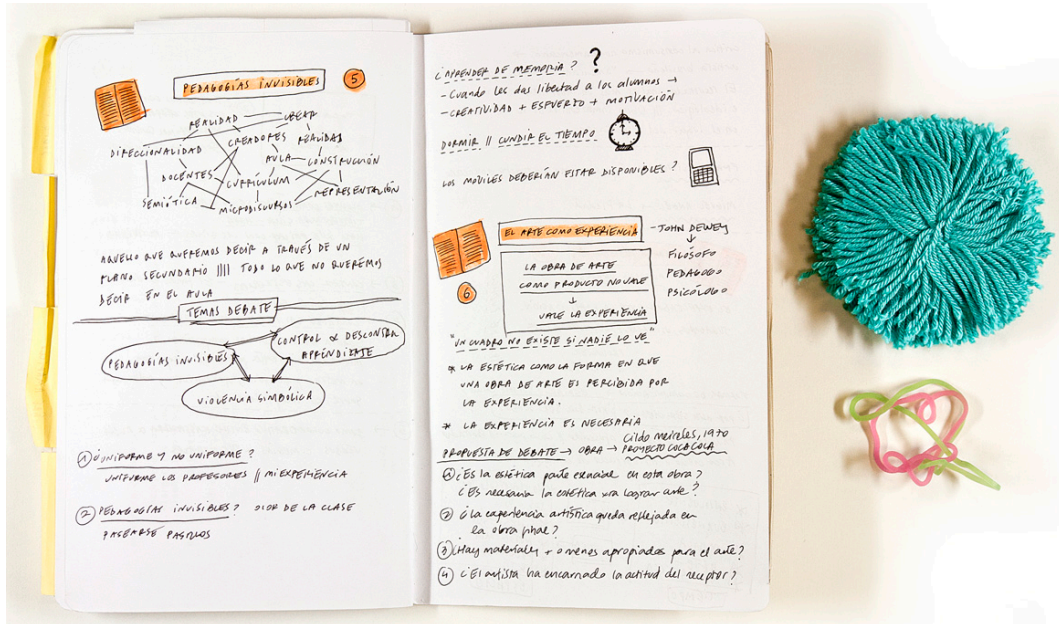 PEDAGOGÍAS INVISIBLES 5
REALIDAD CREAR
DIRECCIONALIDAD CREADORES REALIDAD
AULA CONSTRUCCIÓN
DOCENTES CURRÍCULUM
SEMIÓTICA MICRODISCURSOS REPRESENTACIÓN
AQUELLO QUE QUEREMOS DECIR A TRAVÉS DE UN
PLANO SECUNDARIO |||| TODO LO QUE NO QUEREMOS
DECIR EN EL AULA
TEMAS DEBATE
PEDAGOGÍAS INVISIBLES
CONTROL & DESCONTROL
APRENDIZAJE
VIOLENCIA SIMBÓLICA
1 ¿UNIFORME Y NO UNIFORME?
UNIFORME LOS PROFESORES // MI EXPERIENCIA
2 PEDAGOGÍAS INVISIBLES? OLOR DE LA CLASE
PASEARSE PASILLOS
¿APRENDER DE MEMORIA? ?
- Cuando les das libertad a los alumnos →
- CREATIVIDAD + ESFUERZO + MOTIVACIÓN
DORMIR || CUNDIR EL TIEMPO
LOS MOVILES DEBERÍAN ESTAR DISPONIBLES?
EL ARTE COMO EXPERIENCIA - JOHN DEWEY
↓
FILÓSOFO
PEDAGOGO
PSICÓLOGO
6
LA OBRA DE ARTE
COMO PRODUCTO NO VALE
↓
VALE LA EXPERIENCIA
"UN CUADRO NO EXISTE SI NADIE LO VE"
* LA ESTÉTICA COMO LA FORMA EN QUE
UNA OBRA DE ARTE ES PERCIBIDA POR
LA EXPERIENCIA.
* LA EXPERIENCIA ES NECESARIA
Cildo meireles, 1970
PROPUESTA DE DEBATE → OBRA → PROYECTO COCA COLA
1 ¿Es la estética parte esencial en esta obra?
¿Es necesaria la estética xra lograr arte?
2 ¿La experiencia artística queda reflejada en
la obra final?
3 ¿Hay materiales + o menos apropiados para el arte?
4 ¿El artista ha encarnado la actitud del receptor?